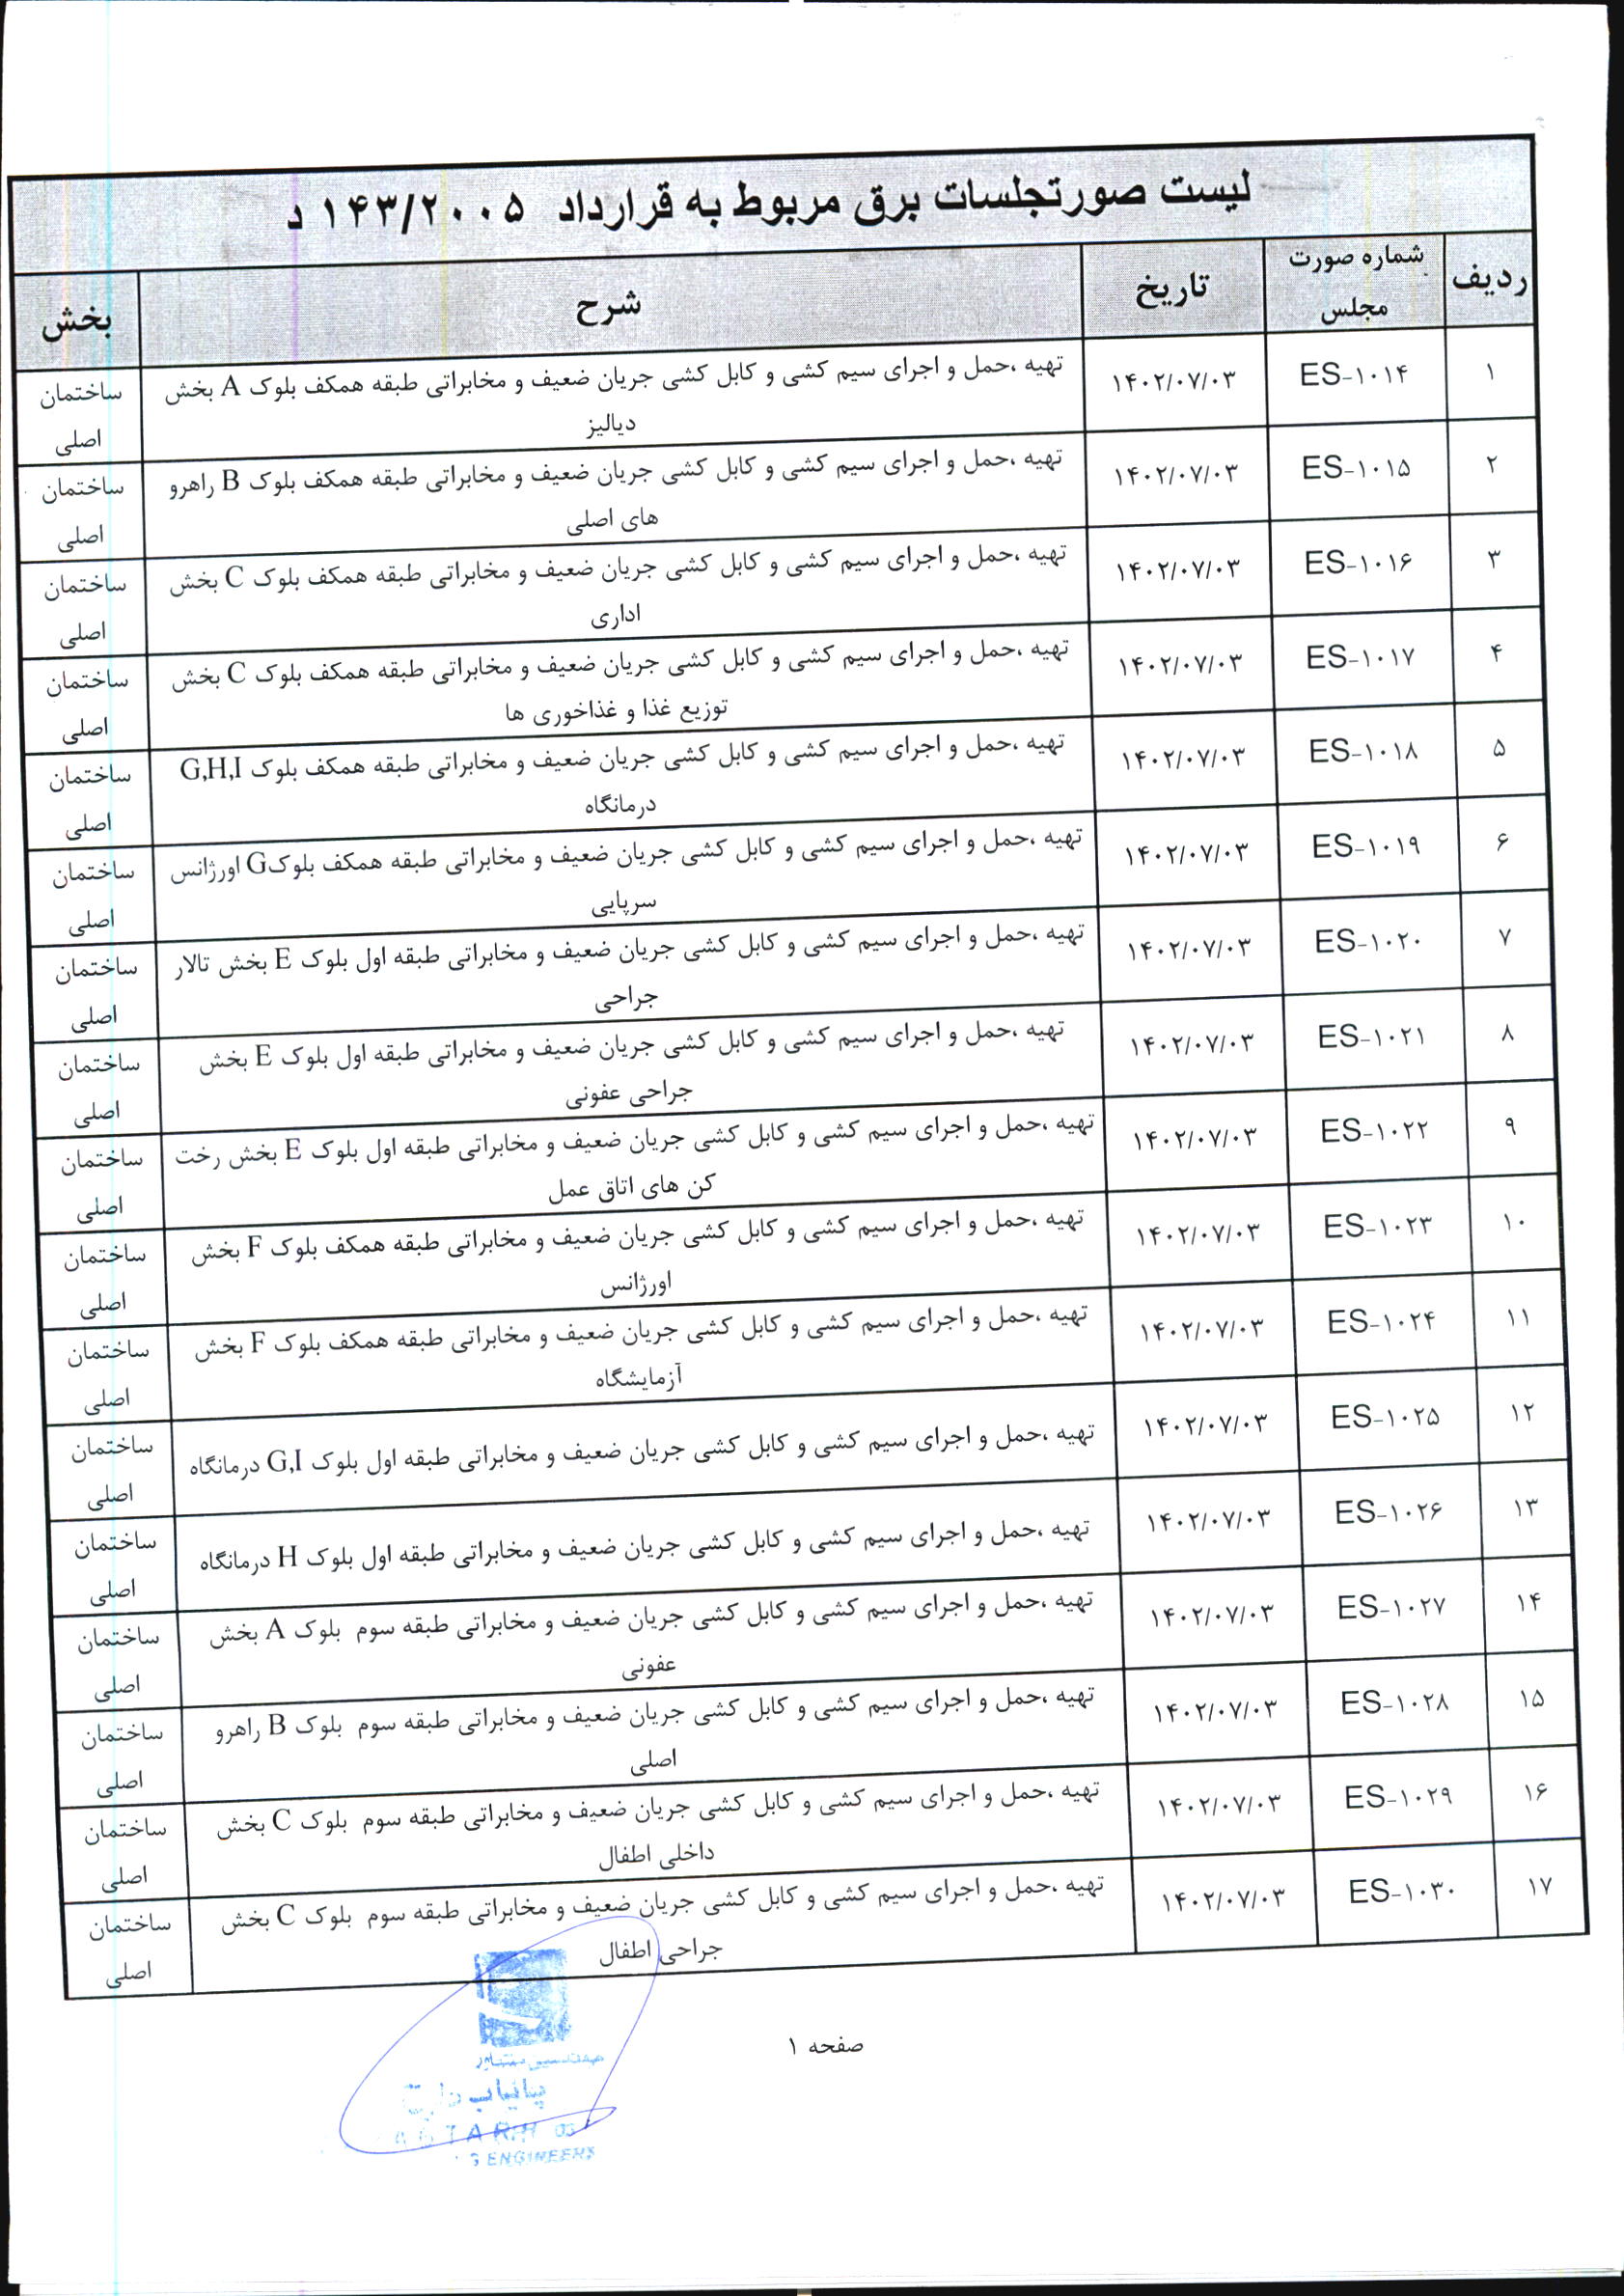 لیست صورتجلسات برق مربوط به قرارداد ۱۴۳/۲۰۰۵ د
ردیف شماره صورت مجلس تاریخ شرح بخش
۱ ES-۱۰۱۴ ۱۴۰۲/۰۷/۰۳ تهیه ،حمل و اجرای سیم کشی و کابل کشی جریان ضعیف و مخابراتی طبقه همکف بلوک A بخش دیالیز ساختمان اصلی
۲ ES-۱۰۱۵ ۱۴۰۲/۰۷/۰۳ تهیه ،حمل و اجرای سیم کشی و کابل کشی جریان ضعیف و مخابراتی طبقه همکف بلوک B راهرو های اصلی ساختمان اصلی
۳ ES-۱۰۱۶ ۱۴۰۲/۰۷/۰۳ تهیه ،حمل و اجرای سیم کشی و کابل کشی جریان ضعیف و مخابراتی طبقه همکف بلوک C بخش اداری ساختمان اصلی
۴ ES-۱۰۱۷ ۱۴۰۲/۰۷/۰۳ تهیه ،حمل و اجرای سیم کشی و کابل کشی جریان ضعیف و مخابراتی طبقه همکف بلوک C بخش توزیع غذا و غذاخوری ها ساختمان اصلی
۵ ES-۱۰۱۸ ۱۴۰۲/۰۷/۰۳ تهیه ،حمل و اجرای سیم کشی و کابل کشی جریان ضعیف و مخابراتی طبقه همکف بلوک G,H,I درمانگاه ساختمان اصلی
۶ ES-۱۰۱۹ ۱۴۰۲/۰۷/۰۳ تهیه ،حمل و اجرای سیم کشی و کابل کشی جریان ضعیف و مخابراتی طبقه همکف بلوکG اورژانس سرپایی ساختمان اصلی
۷ ES-۱۰۲۰ ۱۴۰۲/۰۷/۰۳ تهیه ،حمل و اجرای سیم کشی و کابل کشی جریان ضعیف و مخابراتی طبقه اول بلوک E بخش تالار جراحی ساختمان اصلی
۸ ES-۱۰۲۱ ۱۴۰۲/۰۷/۰۳ تهیه ،حمل و اجرای سیم کشی و کابل کشی جریان ضعیف و مخابراتی طبقه اول بلوک E بخش جراحی عفونی ساختمان اصلی
۹ ES-۱۰۲۲ ۱۴۰۲/۰۷/۰۳ تهیه ،حمل و اجرای سیم کشی و کابل کشی جریان ضعیف و مخابراتی طبقه اول بلوک E بخش رخت کن های اتاق عمل ساختمان اصلی
۱۰ ES-۱۰۲۳ ۱۴۰۲/۰۷/۰۳ تهیه ،حمل و اجرای سیم کشی و کابل کشی جریان ضعیف و مخابراتی طبقه همکف بلوک F بخش اورژانس ساختمان اصلی
۱۱ ES-۱۰۲۴ ۱۴۰۲/۰۷/۰۳ تهیه ،حمل و اجرای سیم کشی و کابل کشی جریان ضعیف و مخابراتی طبقه همکف بلوک F بخش آزمایشگاه ساختمان اصلی
۱۲ ES-۱۰۲۵ ۱۴۰۲/۰۷/۰۳ تهیه ،حمل و اجرای سیم کشی و کابل کشی جریان ضعیف و مخابراتی طبقه اول بلوک G,I درمانگاه ساختمان اصلی
۱۳ ES-۱۰۲۶ ۱۴۰۲/۰۷/۰۳ تهیه ،حمل و اجرای سیم کشی و کابل کشی جریان ضعیف و مخابراتی طبقه اول بلوک H درمانگاه ساختمان اصلی
۱۴ ES-۱۰۲۷ ۱۴۰۲/۰۷/۰۳ تهیه ،حمل و اجرای سیم کشی و کابل کشی جریان ضعیف و مخابراتی طبقه سوم بلوک A بخش عفونی ساختمان اصلی
۱۵ ES-۱۰۲۸ ۱۴۰۲/۰۷/۰۳ تهیه ،حمل و اجرای سیم کشی و کابل کشی جریان ضعیف و مخابراتی طبقه سوم بلوک B راهرو اصلی ساختمان اصلی
۱۶ ES-۱۰۲۹ ۱۴۰۲/۰۷/۰۳ تهیه ،حمل و اجرای سیم کشی و کابل کشی جریان ضعیف و مخابراتی طبقه سوم بلوک C بخش داخلی اطفال ساختمان اصلی
۱۷ ES-۱۰۳۰ ۱۴۰۲/۰۷/۰۳ تهیه ،حمل و اجرای سیم کشی و کابل کشی جریان ضعیف و مخابراتی طبقه سوم بلوک C بخش جراحی اطفال ساختمان اصلی
صفحه ۱
ENGINEERS